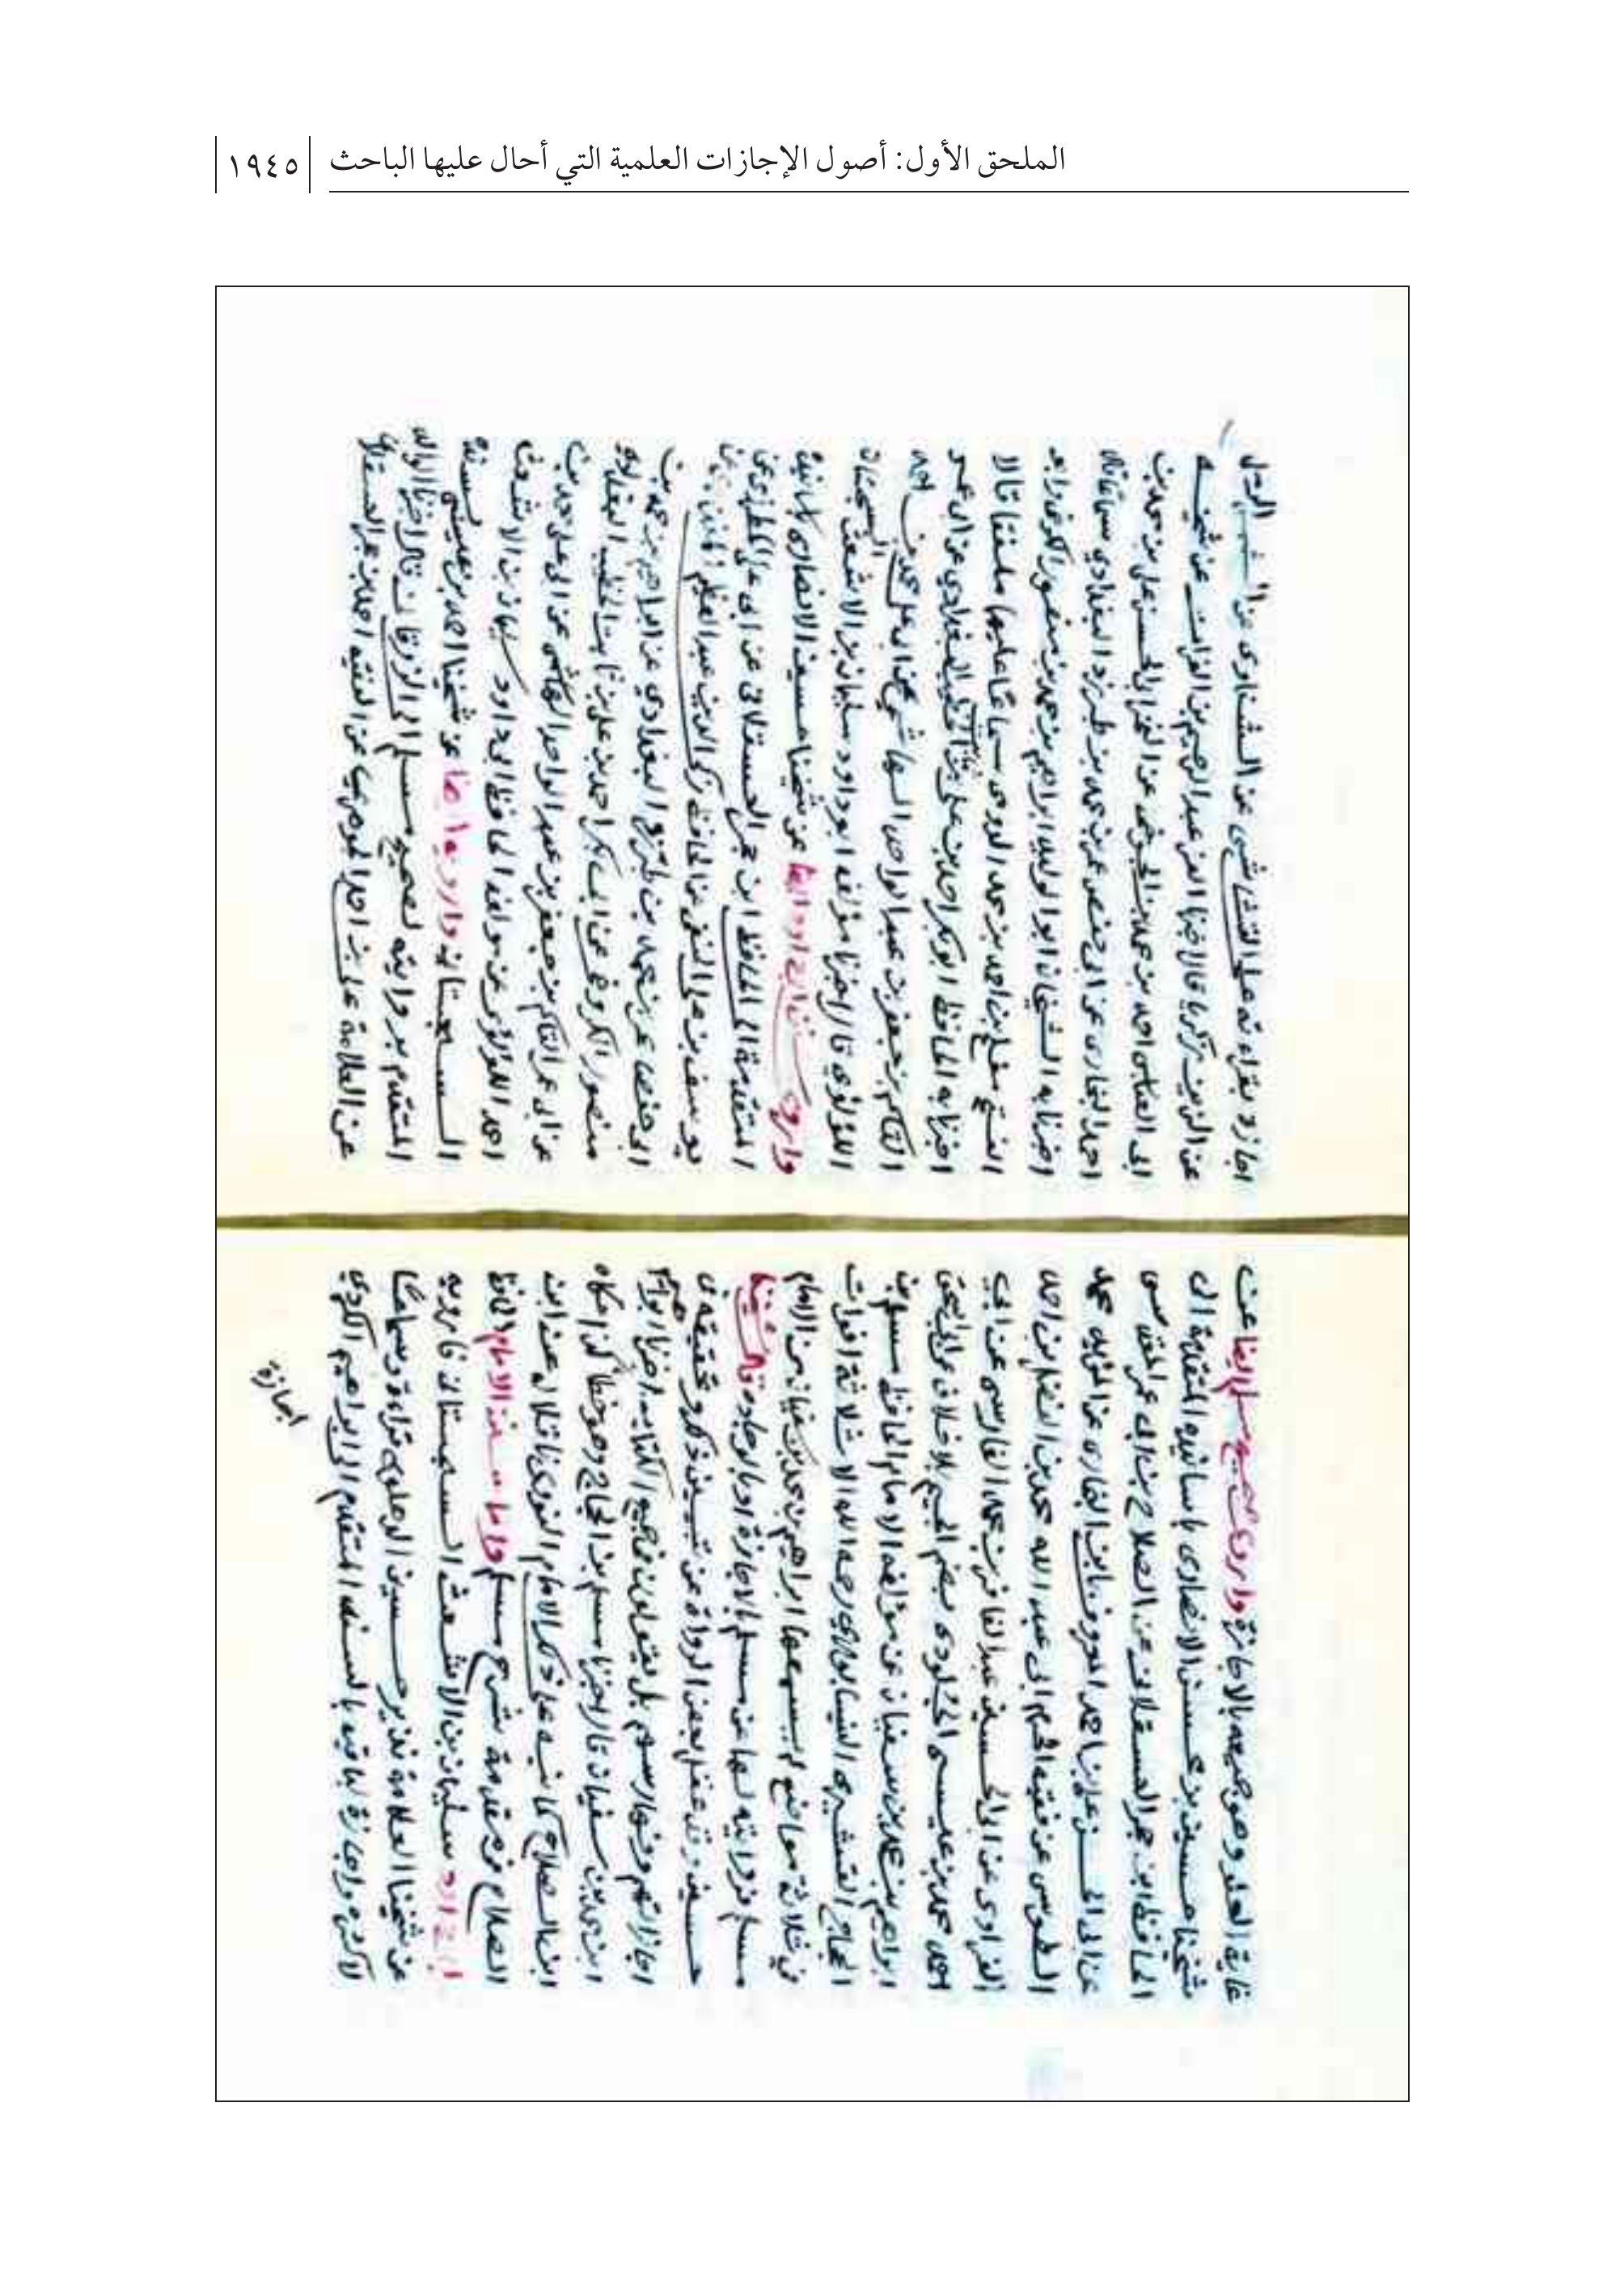 الملحق الأول: أصول الإجازات العلمية التي أحال عليها الباحث ١٩٤٥
غاية العلو وهو جميعه بالاجازة واروى صحيح مسلم ايضا عن
شيخنا حسين بن محسن الانصارى باسانيده المتقدمة الى
الحافظ ابن حجر العسقلانى عن الصلاح بن ابى عمر المقدسى
عن ابى الحسن على بن احمد المعروف بابن البخارى عن المؤيد محمد
الطوسى عن فقيه الحرم ابى عبد الله محمد بن الفضل بن احمد
الفراوى عن ابى الحسين عبد الغافر بن محمد الفارسى عن ابى
احمد محمد بن عيسى الجلودى بضم الجيم بلا خلاف عن ابى اسحق
ابراهيم بن محمد بن سفيان عن مؤلفه الامام الحافظ مسلم بن
الحجاج القشيرى النيسابورى رحمه الله الا ثلاثة افوات
فى ثلاثة مواضع لم يسمعها ابراهيم بن محمد بن سفيان من الامام
مسلم فروايته لها عن مسلم بالاجازة او بالوجادة قال شيخنا
حسين وقد غفل بعض الرواة عن تبيين ذكر وتحقيقه فى
اجازاتهم وفهارسهم بل يقولون فى جميع الكتاب اخبرنا ابراهيم
ابن محمد بن سفيان قال اخبرنا مسلم بن الحجاج وهو خطأ
ابن الصلاح كما نبه على ذكر الامام النووى ناقلا له عن ابن
الصلاح فى مقدمة شرح مسلم واما سنن الامام الحافظ
ابى داود سليمان بن الاشعث السجستانى فارويه
عن شيخنا العلامة نذير حسين الدهلوى قراءة وسماعا
لاكثره واجازة لباقيه بالسند المتقدم الى ابراهيم الكردى
اجازة
اجازة بقراءته على القشاشى عن الشناوى عن الشمس الرملى
عن الزين زكريا قال اخبرنا العز عبد الرحيم بن الفرات عن شيخه
ابى العباس احمد بن محمد بن الجوخى عن الفخر ابى الحسن على بن محمد بن
احمد البخارى عن ابى حفص عمر بن محمد بن طبرزد البغدادى سماعا قال
اخبرنا به الشيخان ابو الوليد ابراهيم بن محمد بن منصور الكرخى وابو
الفتح مفلح بن احمد بن محمد الدومى سماعا عليهما ملفقا قالا
اخبرنا به الحافظ ابو بكر احمد بن على بن ثابت الخطيب البغدادى عن ابى عمر
القاسم بن جعفر بن عبد الواحد الهاشمى عن ابى على محمد بن احمد
اللؤلؤى قال اخبرنا مؤلفه ابو داود سليمان بن الاشعث السجستانى
واروى سنن ابى داود ايضا عن شيخنا حسين الانصارى
المتقدمة الى الحافظ ابن حجر العسقلانى عن ابى على المطرزى عن
يوسف بن على الحنفى عن الحافظ زكى الدين عبد العظيم المنذرى عن
ابى حفص عمر بن محمد بن طبرزد البغدادى عن ابراهيم بن محمد بن
منصور الكروخى عن ابى بكر احمد بن على بن ثابت الخطيب البغدادى
عن ابى عمر القاسم بن جعفر بن عبد الواحد الهاشمى عن ابى على محمد بن
احمد اللؤلؤى عن مولفه الحافظ ابى داود سليمان بن الاشعث
السجستانى وارويه ايضا عن شيخنا احمد بن عيسى بسنده
المتقدم بروايته لصحيح مسلم الى الزرقانى قال اخبرنا الوالد
عن العلامة على بن احمد الاجهورى عن الفقيه احمد بن حجر العسقلانى